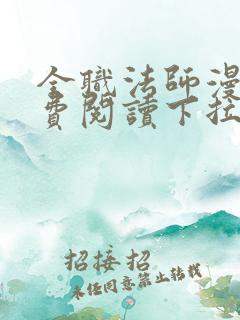 全職法師漫
費閱讀下拉
招接招
未经同意禁止转载